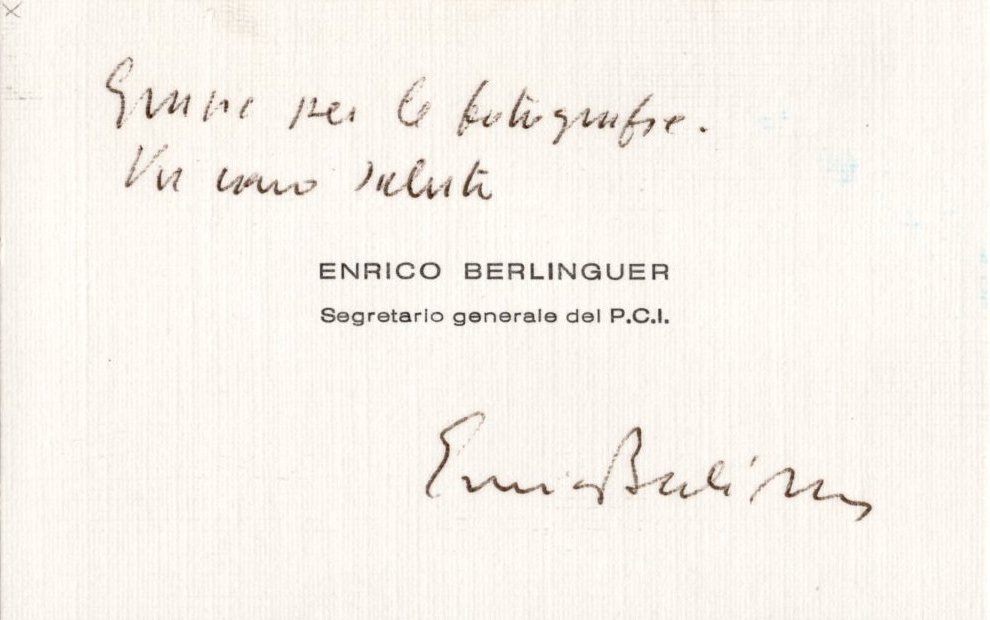 Grazie per le fotografie.
Un caro saluto
ENRICO BERLINGUER
Segretario generale del P.C.I.
Enrico Berlinguer